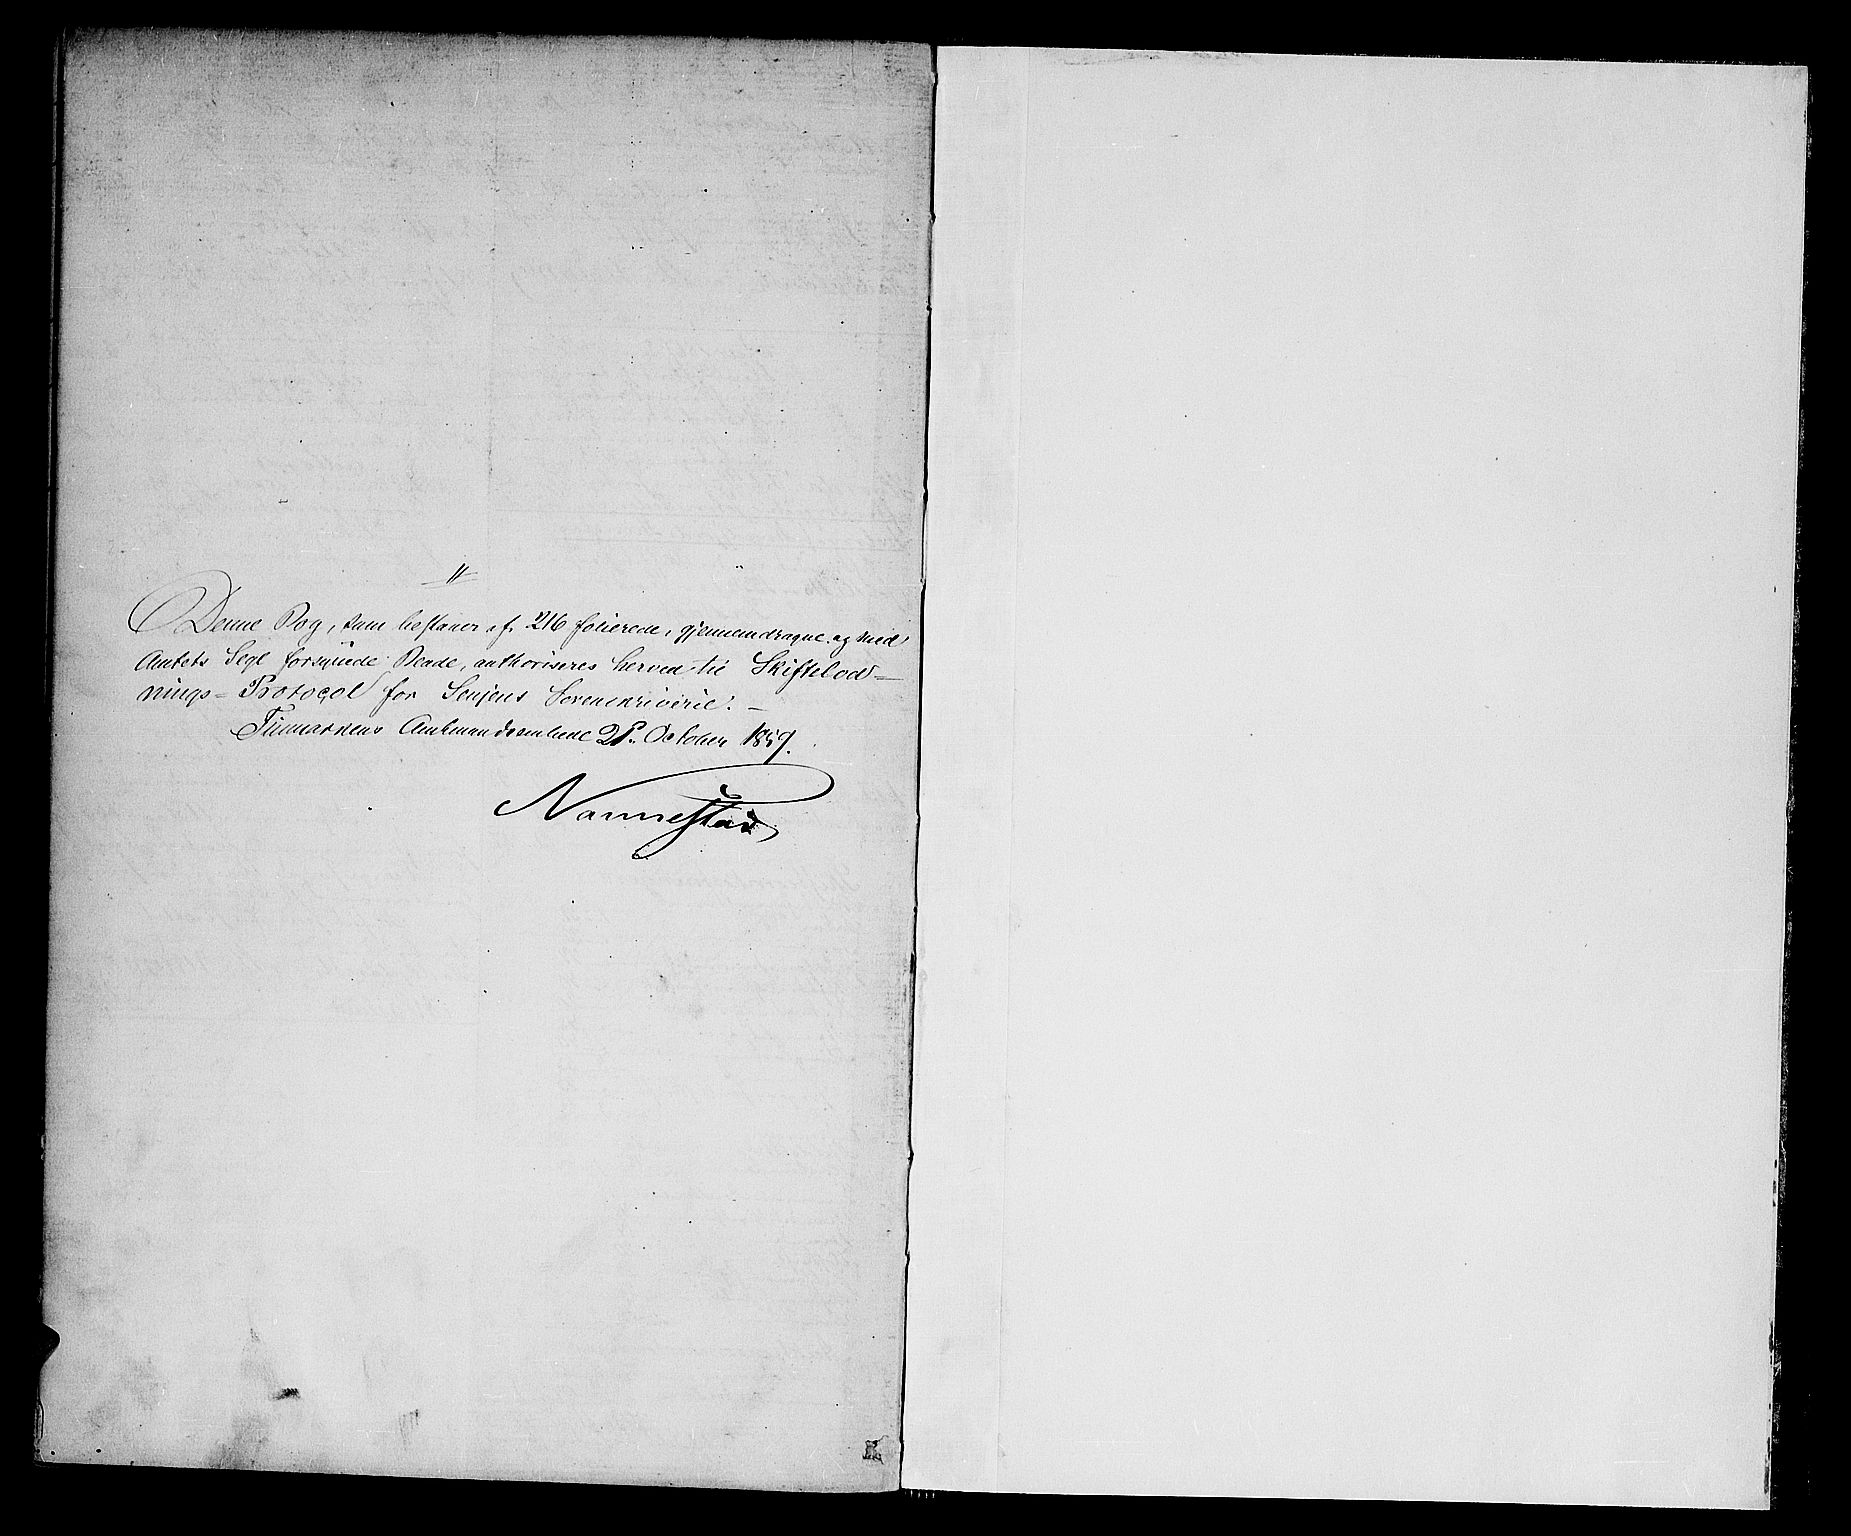 Denne Bog, som bestaaer af 216 folierede, gjennemdragne og med
Amtets Segl forsynede Blade, authoriseres herved til Skiftelod-
nings-Protocol for Senjens Sorenskriverie. -
Finmarkens Amtmandsembede October 1859.
Nannestad